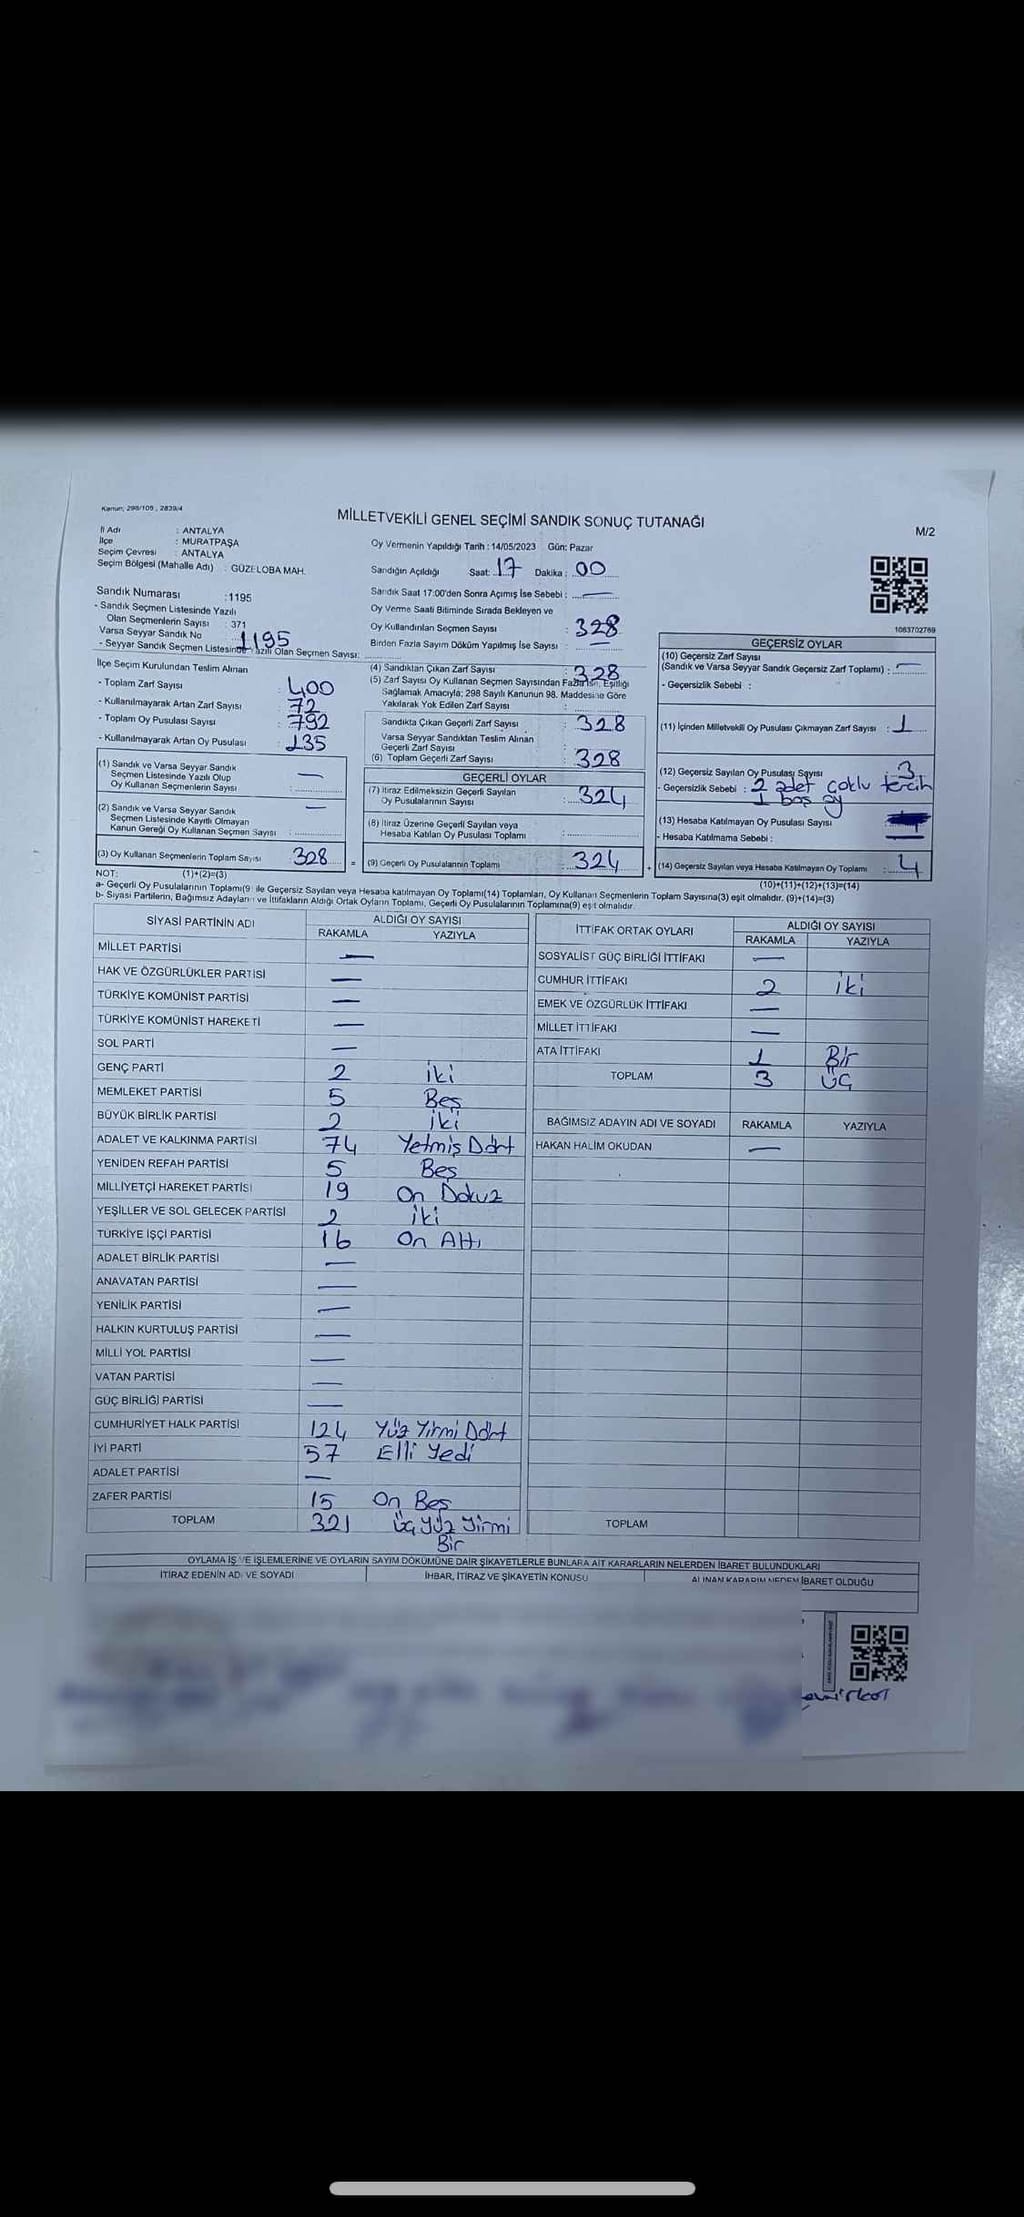 Kanun; 298/105, 2839/4
MİLLETVEKİLİ GENEL SEÇİMİ SANDIK SONUÇ TUTANAĞI
M/2
İl Adı : ANTALYA
İlçe : MURATPAŞA
Seçim Çevresi : ANTALYA
Seçim Bölgesi (Mahalle Adı) : GÜZELOBA MAH.
Sandık Numarası :1195
- Sandık Seçmen Listesinde Yazılı
Olan Seçmenlerin Sayısı : 371
Varsa Seyyar Sandık No 1195
- Seyyar Sandık Seçmen Listesinde Yazılı Olan Seçmen Sayısı:
İlçe Seçim Kurulundan Teslim Alınan
- Toplam Zarf Sayısı : 400
- Kullanılmayarak Artan Zarf Sayısı : 72
- Toplam Oy Pusulası Sayısı : 792
- Kullanılmayarak Artan Oy Pusulası : 135
(1) Sandık ve Varsa Seyyar Sandık
Seçmen Listesinde Yazılı Olup
Oy Kullanan Seçmenlerin Sayısı : —
(2) Sandık ve Varsa Seyyar Sandık
Seçmen Listesinde Kayıtlı Olmayan
Kanun Gereği Oy Kullanan Seçmen Sayısı : —
(3) Oy Kullanan Seçmenlerin Toplam Sayısı 328 =
Oy Vermenin Yapıldığı Tarih : 14/05/2023 Gün: Pazar
Sandığın Açıldığı Saat: 17 Dakika : 00
Sandık Saat 17:00'den Sonra Açımış İse Sebebi : —
Oy Verme Saati Bitiminde Sırada Bekleyen ve
Oy Kullandırılan Seçmen Sayısı : 328
Birden Fazla Sayım Döküm Yapılmış İse Sayısı : —
(4) Sandıktan Çıkan Zarf Sayısı : 328
(5) Zarf Sayısı Oy Kullanan Seçmen Sayısından Fazla İse, Eşitliği
Sağlamak Amacıyla; 298 Sayılı Kanunun 98. Maddesine Göre
Yakılarak Yok Edilen Zarf Sayısı :
Sandıkta Çıkan Geçerli Zarf Sayısı : 328
Varsa Seyyar Sandıktan Teslim Alınan
Geçerli Zarf Sayısı :
(6) Toplam Geçerli Zarf Sayısı : 328
GEÇERLİ OYLAR
(7) İtiraz Edilmeksizin Geçerli Sayılan
Oy Pusulalarının Sayısı : 324
(8) İtiraz Üzerine Geçerli Sayılan veya
Hesaba Katılan Oy Pusulası Toplamı :
(9) Geçerli Oy Pusulalarının Toplamı : 324 +
1063702769
GEÇERSİZ OYLAR
(10) Geçersiz Zarf Sayısı
(Sandık ve Varsa Seyyar Sandık Geçersiz Zarf Toplamı) : —
- Geçersizlik Sebebi :
(11) İçinden Milletvekili Oy Pusulası Çıkmayan Zarf Sayısı : 1
(12) Geçersiz Sayılan Oy Pusulası Sayısı 3
- Geçersizlik Sebebi : 2 adet çoklu tercih
1 boş oy
(13) Hesaba Katılmayan Oy Pusulası Sayısı
- Hesaba Katılmama Sebebi :
(14) Geçersiz Sayılan veya Hesaba Katılmayan Oy Toplamı : 4
NOT: (1)+(2)=(3)
(10)+(11)+(12)+(13)=(14)
a- Geçerli Oy Pusulalarının Toplamı(9) ile Geçersiz Sayılan veya Hesaba katılmayan Oy Toplamı(14) Toplamları, Oy Kullanan Seçmenlerin Toplam Sayısına(3) eşit olmalıdır. (9)+(14)=(3)
b- Siyasi Partilerin, Bağımsız Adayların ve İttifakların Aldığı Ortak Oyların Toplamı, Geçerli Oy Pusulalarının Toplamına(9) eşit olmalıdır.
SİYASİ PARTİNİN ADI ALDIĞI OY SAYISI
RAKAMLA YAZIYLA
MİLLET PARTİSİ —
HAK VE ÖZGÜRLÜKLER PARTİSİ —
TÜRKİYE KOMÜNİST PARTİSİ —
TÜRKİYE KOMÜNİST HAREKETİ —
SOL PARTİ —
GENÇ PARTİ 2 iki
MEMLEKET PARTİSİ 5 Beş
BÜYÜK BİRLİK PARTİSİ 2 iki
ADALET VE KALKINMA PARTİSİ 74 Yetmiş Dört
YENİDEN REFAH PARTİSİ 5 Beş
MİLLİYETÇİ HAREKET PARTİSİ 19 On Dokuz
YEŞİLLER VE SOL GELECEK PARTİSİ 2 iki
TÜRKİYE İŞÇİ PARTİSİ 16 On Altı
ADALET BİRLİK PARTİSİ —
ANAVATAN PARTİSİ —
YENİLİK PARTİSİ —
HALKIN KURTULUŞ PARTİSİ —
MİLLİ YOL PARTİSİ —
VATAN PARTİSİ —
GÜÇ BİRLİĞİ PARTİSİ —
CUMHURİYET HALK PARTİSİ 124 Yüz Yirmi Dört
İYİ PARTİ 57 Elli Yedi
ADALET PARTİSİ —
ZAFER PARTİSİ 15 On Beş
TOPLAM 321 Üç Yüz Yirmi
Bir
İTTİFAK ORTAK OYLARI ALDIĞI OY SAYISI
RAKAMLA YAZIYLA
SOSYALİST GÜÇ BİRLİĞİ İTTİFAKI —
CUMHUR İTTİFAKI 2 iki
EMEK VE ÖZGÜRLÜK İTTİFAKI —
MİLLET İTTİFAKI —
ATA İTTİFAKI 1 Bir
TOPLAM 3 ÜÇ
BAĞIMSIZ ADAYIN ADI VE SOYADI RAKAMLA YAZIYLA
HAKAN HALİM OKUDAN —
TOPLAM
OYLAMA İŞ VE İŞLEMLERİNE VE OYLARIN SAYIM DÖKÜMÜNE DAİR ŞİKAYETLERLE BUNLARA AİT KARARLARIN NELERDEN İBARET BULUNDUKLARI
İTİRAZ EDENİN ADI VE SOYADI İHBAR, İTİRAZ VE ŞİKAYETİN KONUSU ALINAN KARARIN NEDEN İBARET OLDUĞU